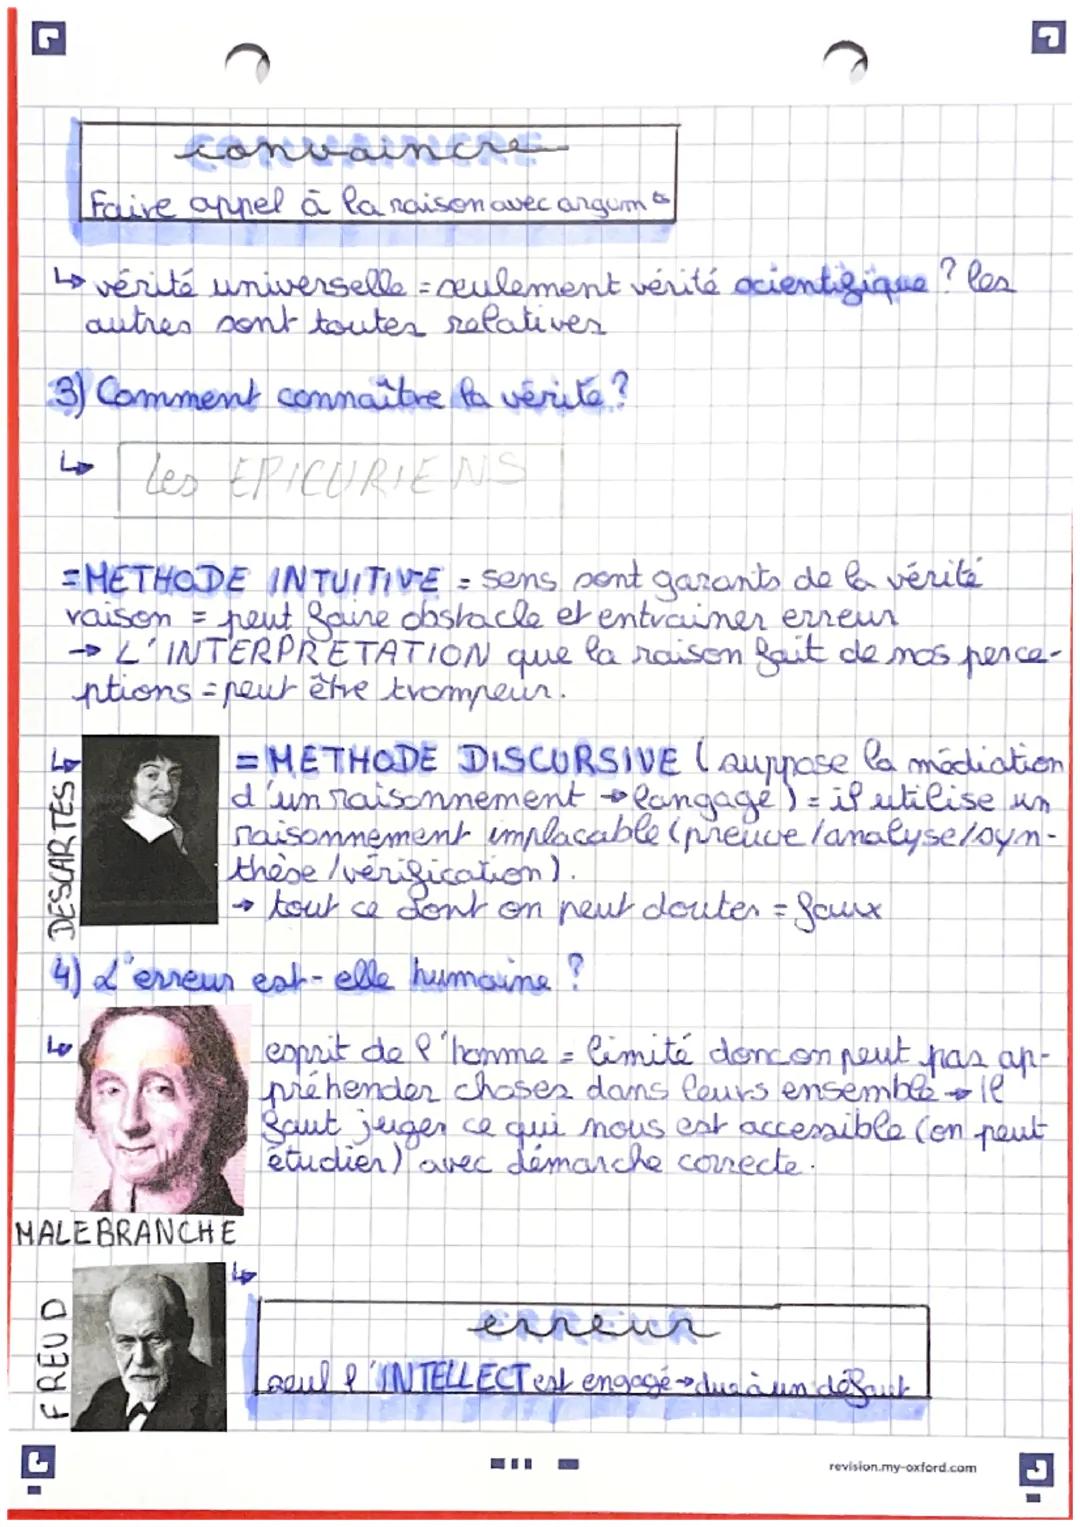 convaincre
Faire appel à la raison avec argumts
↳ vérité universelle = seulement vérité scientifique ? les
autres sont toutes relatives
3) Comment connaître la vérité ?
↳ Les EPICURIENS
= METHODE INTUITIVE = sens sont garants de la vérité
raison = peut faire obstacle et entrainer erreur
→ L'INTERPRETATION que la raison fait de nos perce-
ptions = peut être trompeur.
DESCARTES ↳
= METHODE DISCURSIVE (suppose la médiation
d'un raisonnement → langage) = il utilise un
raisonnement implacable (preuve/analyse/syn-
thèse/vérification).
→ tout ce dont on peut douter = faux
4) L'erreur est-elle humaine ?
↳ esprit de l'homme = limité donc on peut pas ap-
préhender choses dans leurs ensemble → il
faut juger ce qui nous est accessible (on peut
étudier) avec démarche correcte.
MALEBRANCHE
FREUD
↳ erreur
seul l'INTELLECT est engagé → due à un défaut
revision.my-oxford.com